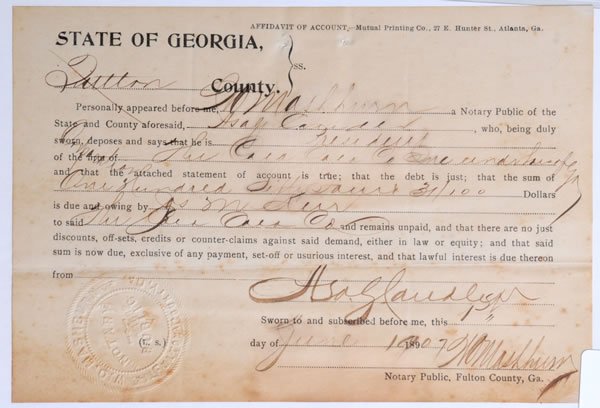 AFFIDAVIT OF ACCOUNT.—Mutual Printing Co., 27 E. Hunter St., Atlanta, Ga.
STATE OF GEORGIA,
ss.
Fulton County.
Personally appeared before me, W O Mashburn a Notary Public of the
State and County aforesaid, Asa G Candler, who, being duly
sworn, deposes and says that he is President
of the firm of The Coca Cola Co
and that the attached statement of account is true; that the debt is just; that the sum of
One Hundred Fifty /100 Dollars
is due and owing by
to said The Coca Cola Co and remains unpaid, and that there are no just
discounts, off-sets, credits or counter-claims against said demand, either in law or equity; and that said
sum is now due, exclusive of any payment, set-off or usurious interest, and that lawful interest is due thereon
from
Asa G Candler
Sworn to and subscribed before me, this 15"
day of June 1907 W O Mashburn
(L. S.)
Notary Public, Fulton County, Ga.